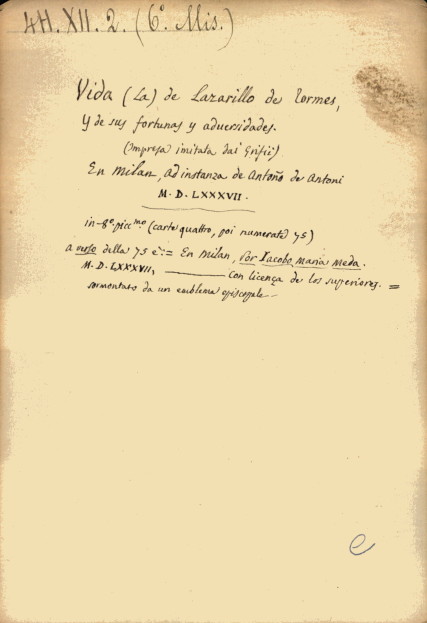 4H. XII. 2. (6.° Mis.)
Vida (La) de Lazarillo de Tormes,
y de sus fortunas y aduersidades.
(Impresa imitata dai Grifii)
En Milan, Ad instanza de Antoño de Antoni
M. D. LXXXVII.
in-8.° picc.mo (carte quattro, poi numerate 75)
a verso della 75 è := En Milan, Por Iacobo Maria Meda.
M. D. LXXXVII, con licença de los superiores. =
sormontato da un emblema episcopale
e